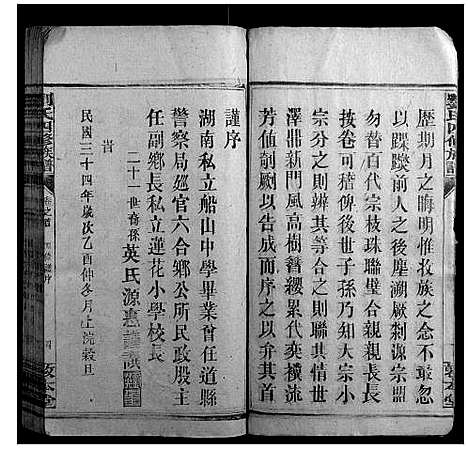 劉氏四修族譜
歷期月之晦明惟收族之念不敢忽
以蹀躞前人之後塵溯厥剩源宗盟
勿替百代宗枝珠聯璧合親親長長
按卷可稽俾後世子孫乃知大宗小
宗分之則辨其等合之則聯其情世
澤鼎新門風高樹簪纓累代奕襈流
芳尤幸剞劂以告成而序之以弁其首
謹序
湖南私立船山中學畢業曾任道縣
警察局巡官六合鄉公所民政股主
任副鄉長私立蓮花小學校長
二十一世裔孫英氏源惠謹撰
民國三十四年歲次乙酉仲冬月上浣穀旦
劉氏四修族譜
卷之首
四
敦本堂